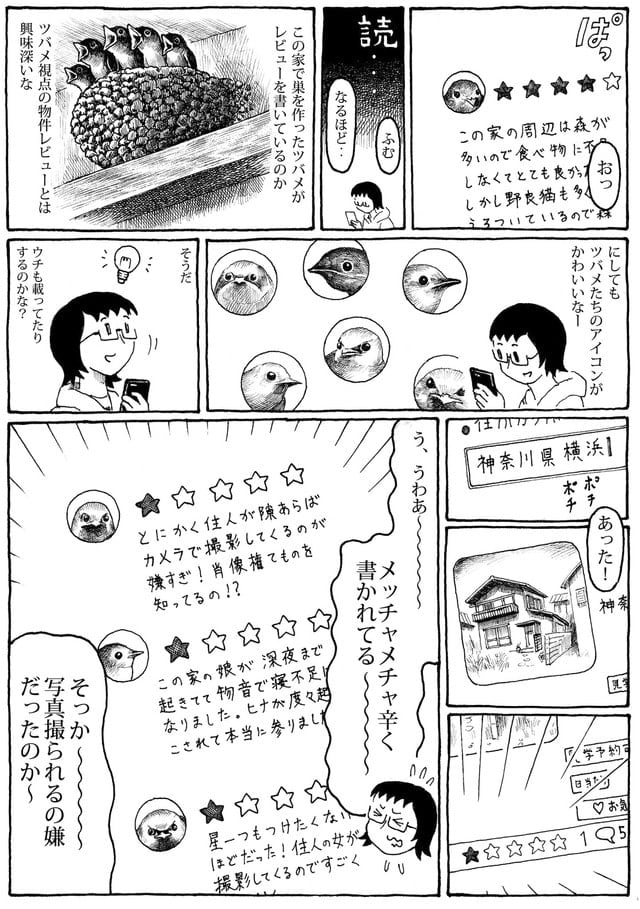 ぱっ
この家の周辺は森が
多いので食べ物に不
しなくてとても良かっ
しかし野良猫も多く
うろついているので
おっ
読・・・
ふむ
なるほど・・
この家で巣を作ったツバメが
レビューを書いているのか
ツバメ視点の物件レビューとは
興味深いな
にしても
ツバメたちのアイコンが
かわいいなー
そうだ
ウチも載ってたり
するのかな?
神奈川県 横浜
ポチ
ポチ
あった!
神奈
見学
見学予約可
日当たり
♡お気
1
5
う、うわあ〜
メッチャメチャ辛く
書かれてる〜
とにかく住人が隙あらば
カメラで撮影してくるのが
嫌すぎ!肖像権てものを
知ってるの!?
この家の娘が深夜まで
起きてて物音で寝不足に
なりました。ヒナが度々起
こされて本当に参りました
星一つもつけたくない
ほどだった!住人の女が
撮影してくるのですごく
そっか〜
写真撮られるの嫌
だったのか〜